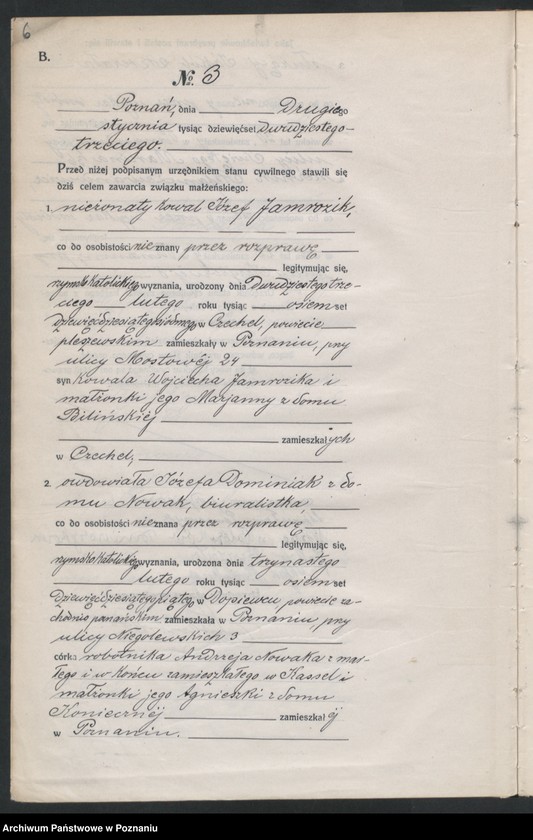 6
B.
№ 3
Poznań, dnia Drugiego
stycznia tysiąc dziewięćset dwudziestego
trzeciego.
Przed niżej podpisanym urzędnikiem stanu cywilnego stawili się
dziś celem zawarcia związku małżeńskiego:
1. nieżonaty kowal Józef Jamrozik,
co do osobistości nieznany przez rozprawę
legitymując się,
rzymsko katolickiego wyznania, urodzony dnia dwudziestego trze-
ciego lutego roku tysiąc osiemset
dziewięćdziesiątego siódmego w Czechel, powiecie
pleszewskim zamieszkały w Poznaniu, przy
ulicy Mostowéj 24
syn kowala Wojciecha Jamrozika i
małżonki jego Marjanny z domu
Bilińskiej
zamieszkałych
w Czechel,
2. owdowiała Józefa Dominiak z do-
mu Nowak, biuralistka,
co do osobistości nieznana przez rozprawę
legitymując się,
rzymsko katolickiego wyznania, urodzona dnia trzynastego
lutego roku tysiąc osiemset
dziewięćdziesiątego piątego w Dopiewcu, powiecie za-
chodnio poznańskim zamieszkała w Poznaniu, przy
ulicy Niegolewskich 3
córka robotnika Andrzeja Nowaka zmar-
łego i w końcu zamieszkałego w Kassel i
małżonki jego Agnieszki z domu
Koniecznéj zamieszkałéj
w Poznaniu.
Archiwum Państwowe w Poznaniu